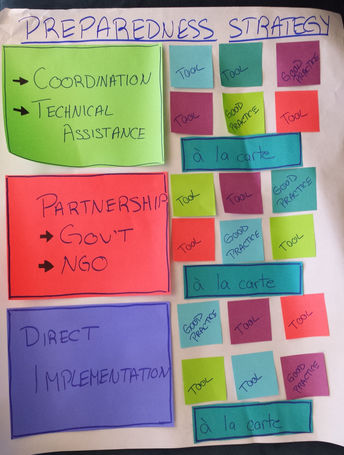 PREPAREDNESS STRATEGY
→ COORDINATION
→ TECHNICAL
ASSISTANCE
TOOL
TOOL
GOOD
PRACTICE
TOOL
GOOD
PRACTICE
TOOL
à la carte
PARTNERSHIP
→ GOV'T
→ NGO
TOOL
TOOL
GOOD
PRACTICE
TOOL
GOOD
PRACTICE
TOOL
à la carte
DIRECT
IMPLEMENTATION
GOOD
PRACTICE
TOOL
TOOL
TOOL
TOOL
GOOD
PRACTICE
à la carte